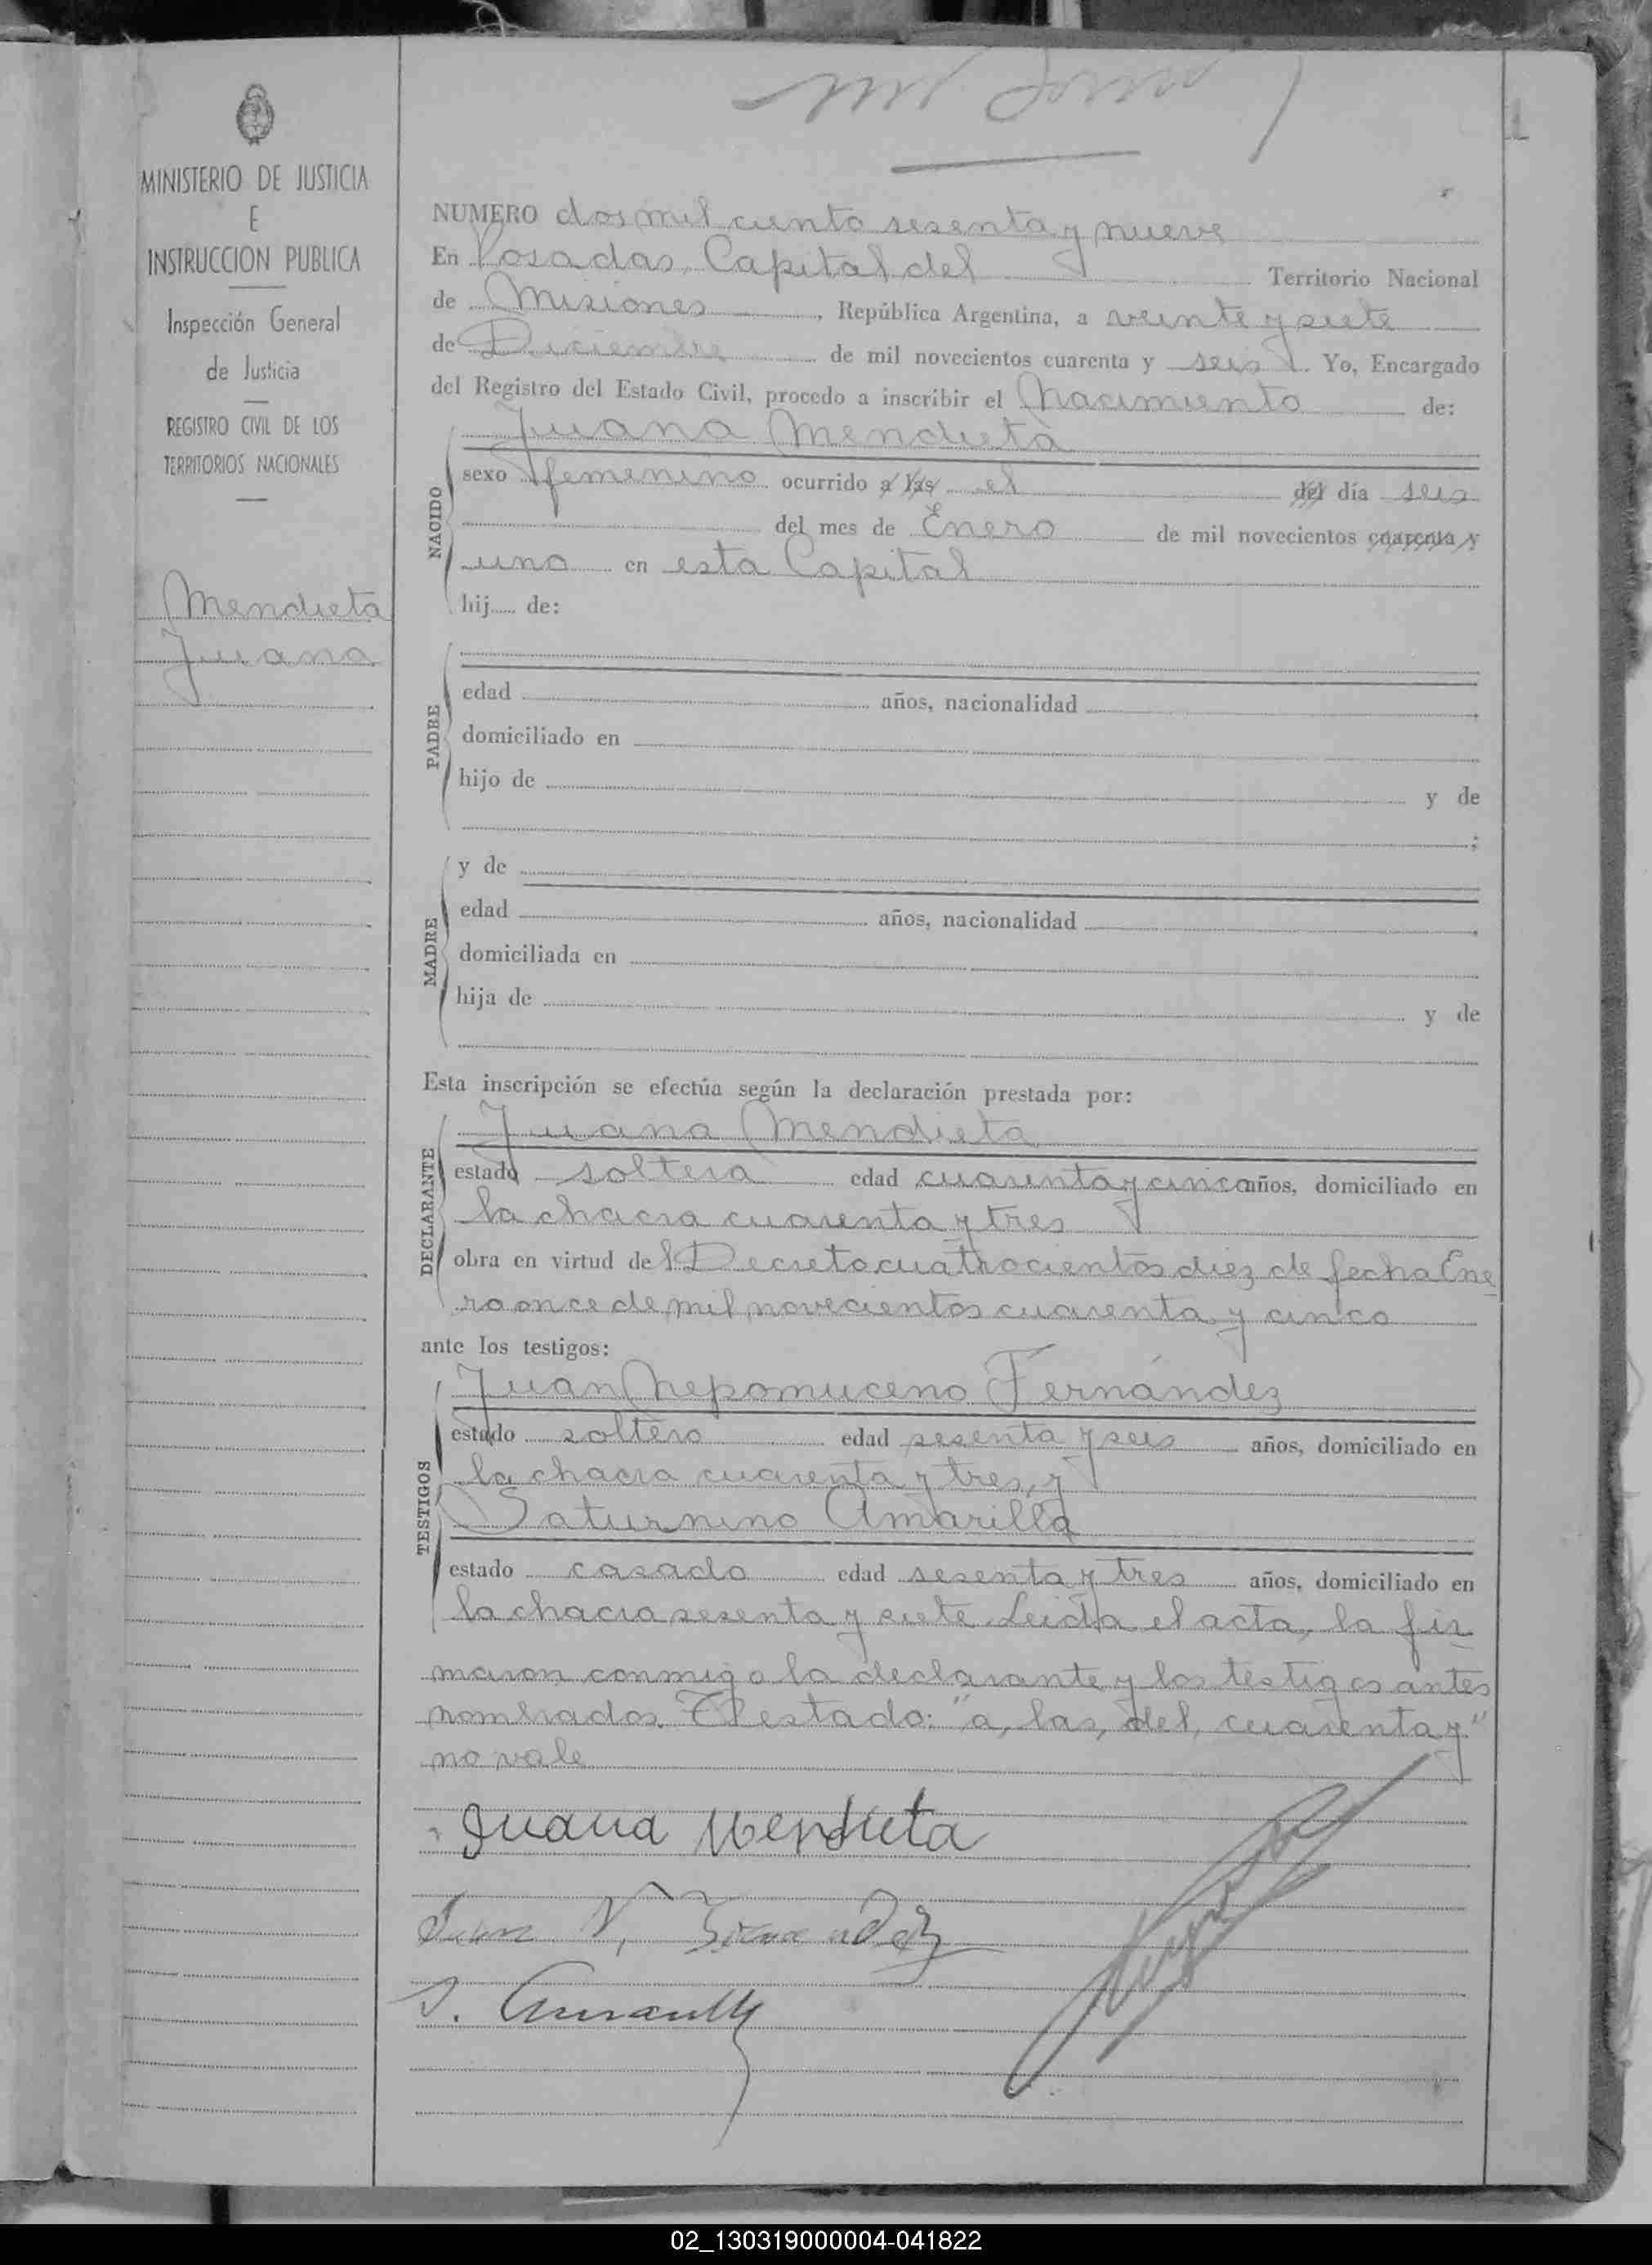 1
MINISTERIO DE JUSTICIA
E
INSTRUCCION PUBLICA
Inspección General
de Justicia
REGISTRO CIVIL DE LOS
TERRITORIOS NACIONALES
Mendieta
Juana
NUMERO dos mil ciento sesenta y nueve
En Posadas, Capital del Territorio Nacional
de Misiones, República Argentina, a veinte y siete
de Diciembre de mil novecientos cuarenta y seis. Yo, Encargado
del Registro del Estado Civil, procedo a inscribir el Nacimiento de:
Juana Mendieta
NACIDO
sexo femenino ocurrido a las el del día seis
del mes de Enero de mil novecientos cuarenta y
uno en esta Capital
hij de:
PADRE
edad años, nacionalidad
domiciliado en
hijo de y de
;
MADRE
y de
edad años, nacionalidad
domiciliada en
hija de y de
Esta inscripción se efectúa según la declaración prestada por:
DECLARANTE
Juana Mendieta
estado soltera edad cuarenta y cinco años, domiciliado en
la chacra cuarenta y tres
obra en virtud del Decreto cuatrocientos diez de fecha Ene
ro once de mil novecientos cuarenta y cinco
ante los testigos:
TESTIGOS
Juan Nepomuceno Fernández
estado soltero edad sesenta y seis años, domiciliado en
la chacra cuarenta y tres, y
Saturnino Amarilla
estado casado edad sesenta y tres años, domiciliado en
la chacra sesenta y siete. Leida el acta, la fir
maron conmigo la declarante y los testigos antes
nombrados. El estado: "a, las, del, cuarenta y"
no vale
Juana Mendieta
Juan N. Fernandez
S. Amarilla
02_130319000004-041822